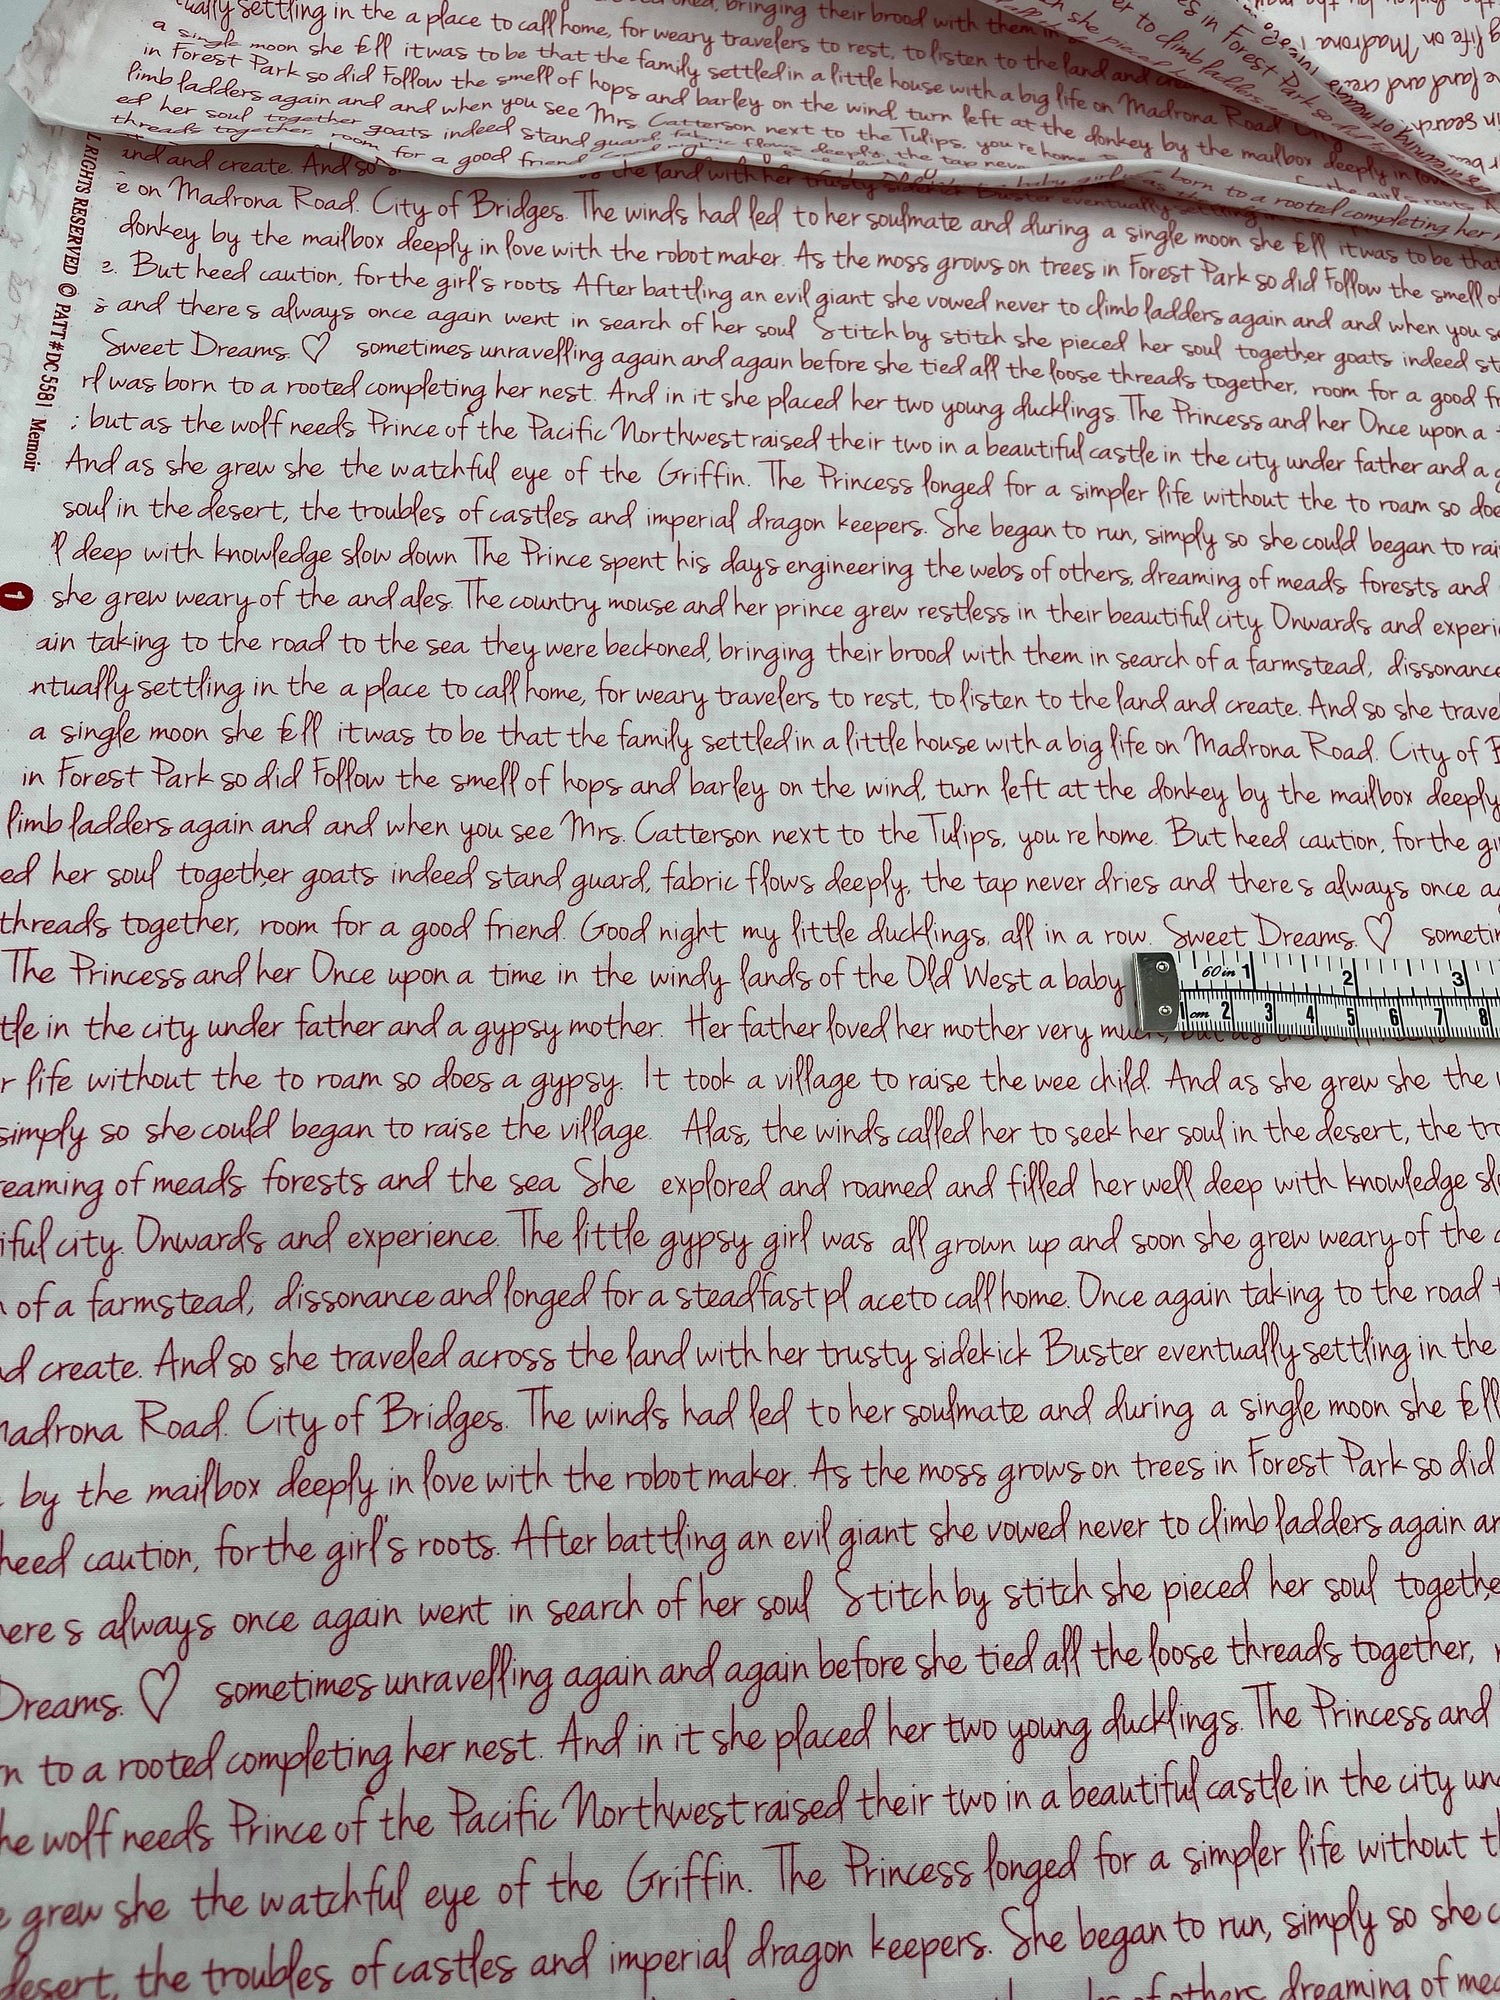 ually settling in the a place to call home, for weary travelers to rest, to listen to the land and
a single moon she fell it was to be that the family settled in a little house with a big life on Madrona Road
in Forest Park so did Follow the smell of hops and barley on the wind, turn left at the donkey by the mailbox deeply in
limb ladders again and and when you see Mrs. Catterson next to the Tulips, you re home
ed her soul together goats indeed stand guard, fabric flows deeply, the tap
threads together, room for a good friend
L RIGHTS RESERVED © PATT# DC5581 Memoir
1
and and create. And so the land with her trusty sidekick Buster eventually settling
e on Madrona Road. City of Bridges. The winds had led to her soulmate and during a single moon she fell it was to be that
donkey by the mailbox deeply in love with the robot maker. As the moss grows on trees in Forest Park so did Follow the smell of
e. But heed caution, for the girl's roots After battling an evil giant she vowed never to climb ladders again and and when you
s and there s always once again went in search of her soul Stitch by stitch she pieced her soul together goats indeed
Sweet Dreams. ♡ sometimes unravelling again and again before she tied all the loose threads together, room for a good
rl was born to a rooted completing her nest. And in it she placed her two young ducklings. The Princess and her Once upon a
; but as the wolf needs Prince of the Pacific Northwest raised their two in a beautiful castle in the city under father and a
And as she grew she the watchful eye of the Griffin. The Princess longed for a simpler life without the to roam so doe
soul in the desert, the troubles of castles and imperial dragon keepers. She began to run, simply so she could began to rai
ll deep with knowledge slow down The Prince spent his days engineering the webs of others, dreaming of meads forests and
she grew weary of the and ales. The country mouse and her prince grew restless in their beautiful city Onwards and experi
ain taking to the road to the sea they were beckoned, bringing their brood with them in search of a farmstead, dissonance
ntually settling in the a place to call home, for weary travelers to rest, to listen to the land and create. And so she trave
a single moon she fell it was to be that the family settled in a little house with a big life on Madrona Road. City of B
in Forest Park so did Follow the smell of hops and barley on the wind, turn left at the donkey by the mailbox deeply
limb ladders again and and when you see Mrs. Catterson next to the Tulips, you re home. But heed caution, for the gi
ed her soul together goats indeed stand guard, fabric flows deeply, the tap never dries and there s always once a
threads together, room for a good friend. Good night my little ducklings, all in a row. Sweet Dreams. ♡ someti
The Princess and her Once upon a time in the windy lands of the Old West a baby
60in 1 2 3
1 cm 2 3 4 5 6 7 8
tle in the city under father and a gypsy mother. Her father loved her mother very much, but as
r life without the to roam so does a gypsy. It took a village to raise the wee child. And as she grew she the
simply so she could began to raise the village. Alas, the winds called her to seek her soul in the desert, the tro
eaming of meads forests and the sea She explored and roamed and filled her well deep with knowledge sl
iful city. Onwards and experience. The little gypsy girl was all grown up and soon she grew weary of the
of a farmstead, dissonance and longed for a steadfast pl ace to call home. Once again taking to the road
d create. And so she traveled across the land with her trusty sidekick Buster eventually settling in the
Madrona Road. City of Bridges. The winds had led to her soulmate and during a single moon she fell
by the mailbox deeply in love with the robot maker. As the moss grows on trees in Forest Park so did
heed caution, for the girl's roots. After battling an evil giant she vowed never to climb ladders again an
ere s always once again went in search of her soul Stitch by stitch she pieced her soul togethe
Dreams. ♡ sometimes unravelling again and again before she tied all the loose threads together,
n to a rooted completing her nest. And in it she placed her two young ducklings. The Princess and
he wolf needs Prince of the Pacific Northwest raised their two in a beautiful castle in the city un
e grew she the watchful eye of the Griffin. The Princess longed for a simpler life without t
desert, the troubles of castles and imperial dragon keepers. She began to run, simply so she c
of others, dreaming of mea